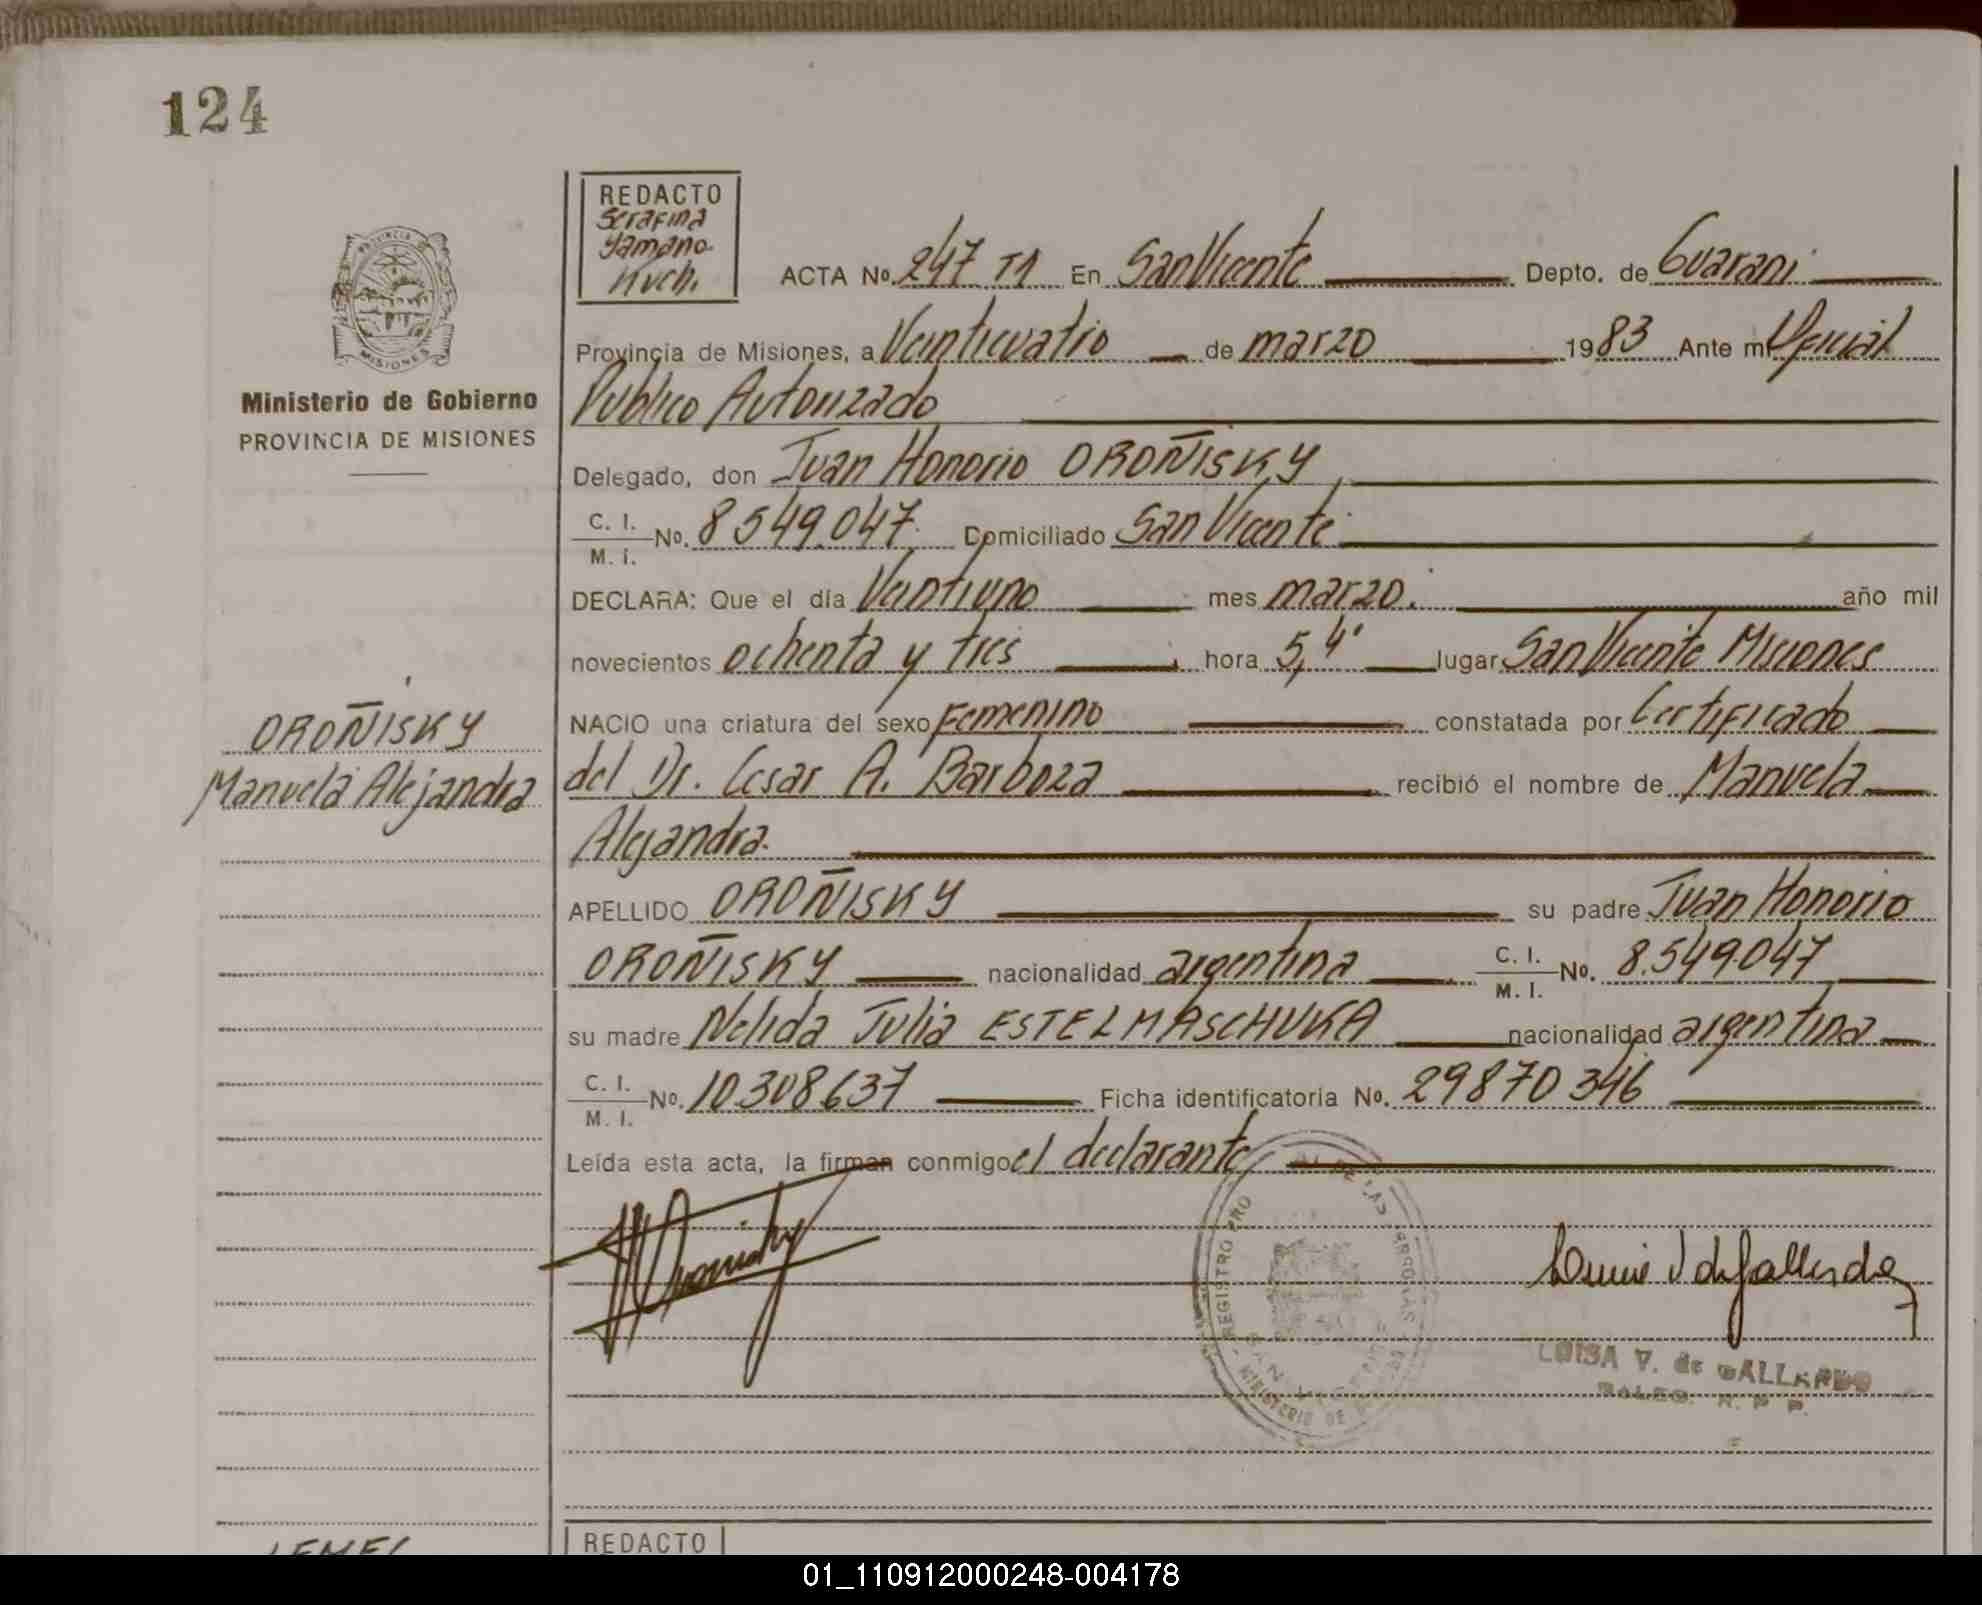 124
REDACTO
Serafina
Yamano
Kuch.
PROVINCIA
MISIONES
Ministerio de Gobierno
PROVINCIA DE MISIONES
ACTA No. 247 T1 En San Vicente Depto. de Guarani
Provincia de Misiones, a Veinticuatro de marzo 1983 Ante mí Oficial
Publico Autorizado
Delegado, don Juan Honorio OROÑISKY
C. I. / M. I. No. 8549.047. Domiciliado San Vicente
DECLARA: Que el día Veintiuno mes marzo. año mil
novecientos ochenta y tres hora 5,4' lugar San Vicente Misiones
NACIO una criatura del sexo Femenino constatada por Certificado
del Dr. Cesar A. Barboza recibió el nombre de Manuela
Alejandra.
APELLIDO OROÑISKY su padre Juan Honorio
OROÑISKY nacionalidad argentina C. I. / M. I. No. 8.549.047
su madre Nelida Julia ESTELMASCHUKA nacionalidad argentina
C. I. / M. I. No. 10.308.637 Ficha identificatoria No. 29870346
Leída esta acta, la firman conmigo el declarante
OROÑISKY
Manuela Alejandra
REGISTRO PRO DE LAS PERSONAS
SAN VICENTE
MINISTERIO DE
LUISA V. de GALLARDO
R. P. P.
REDACTO
01_110912000248-004178